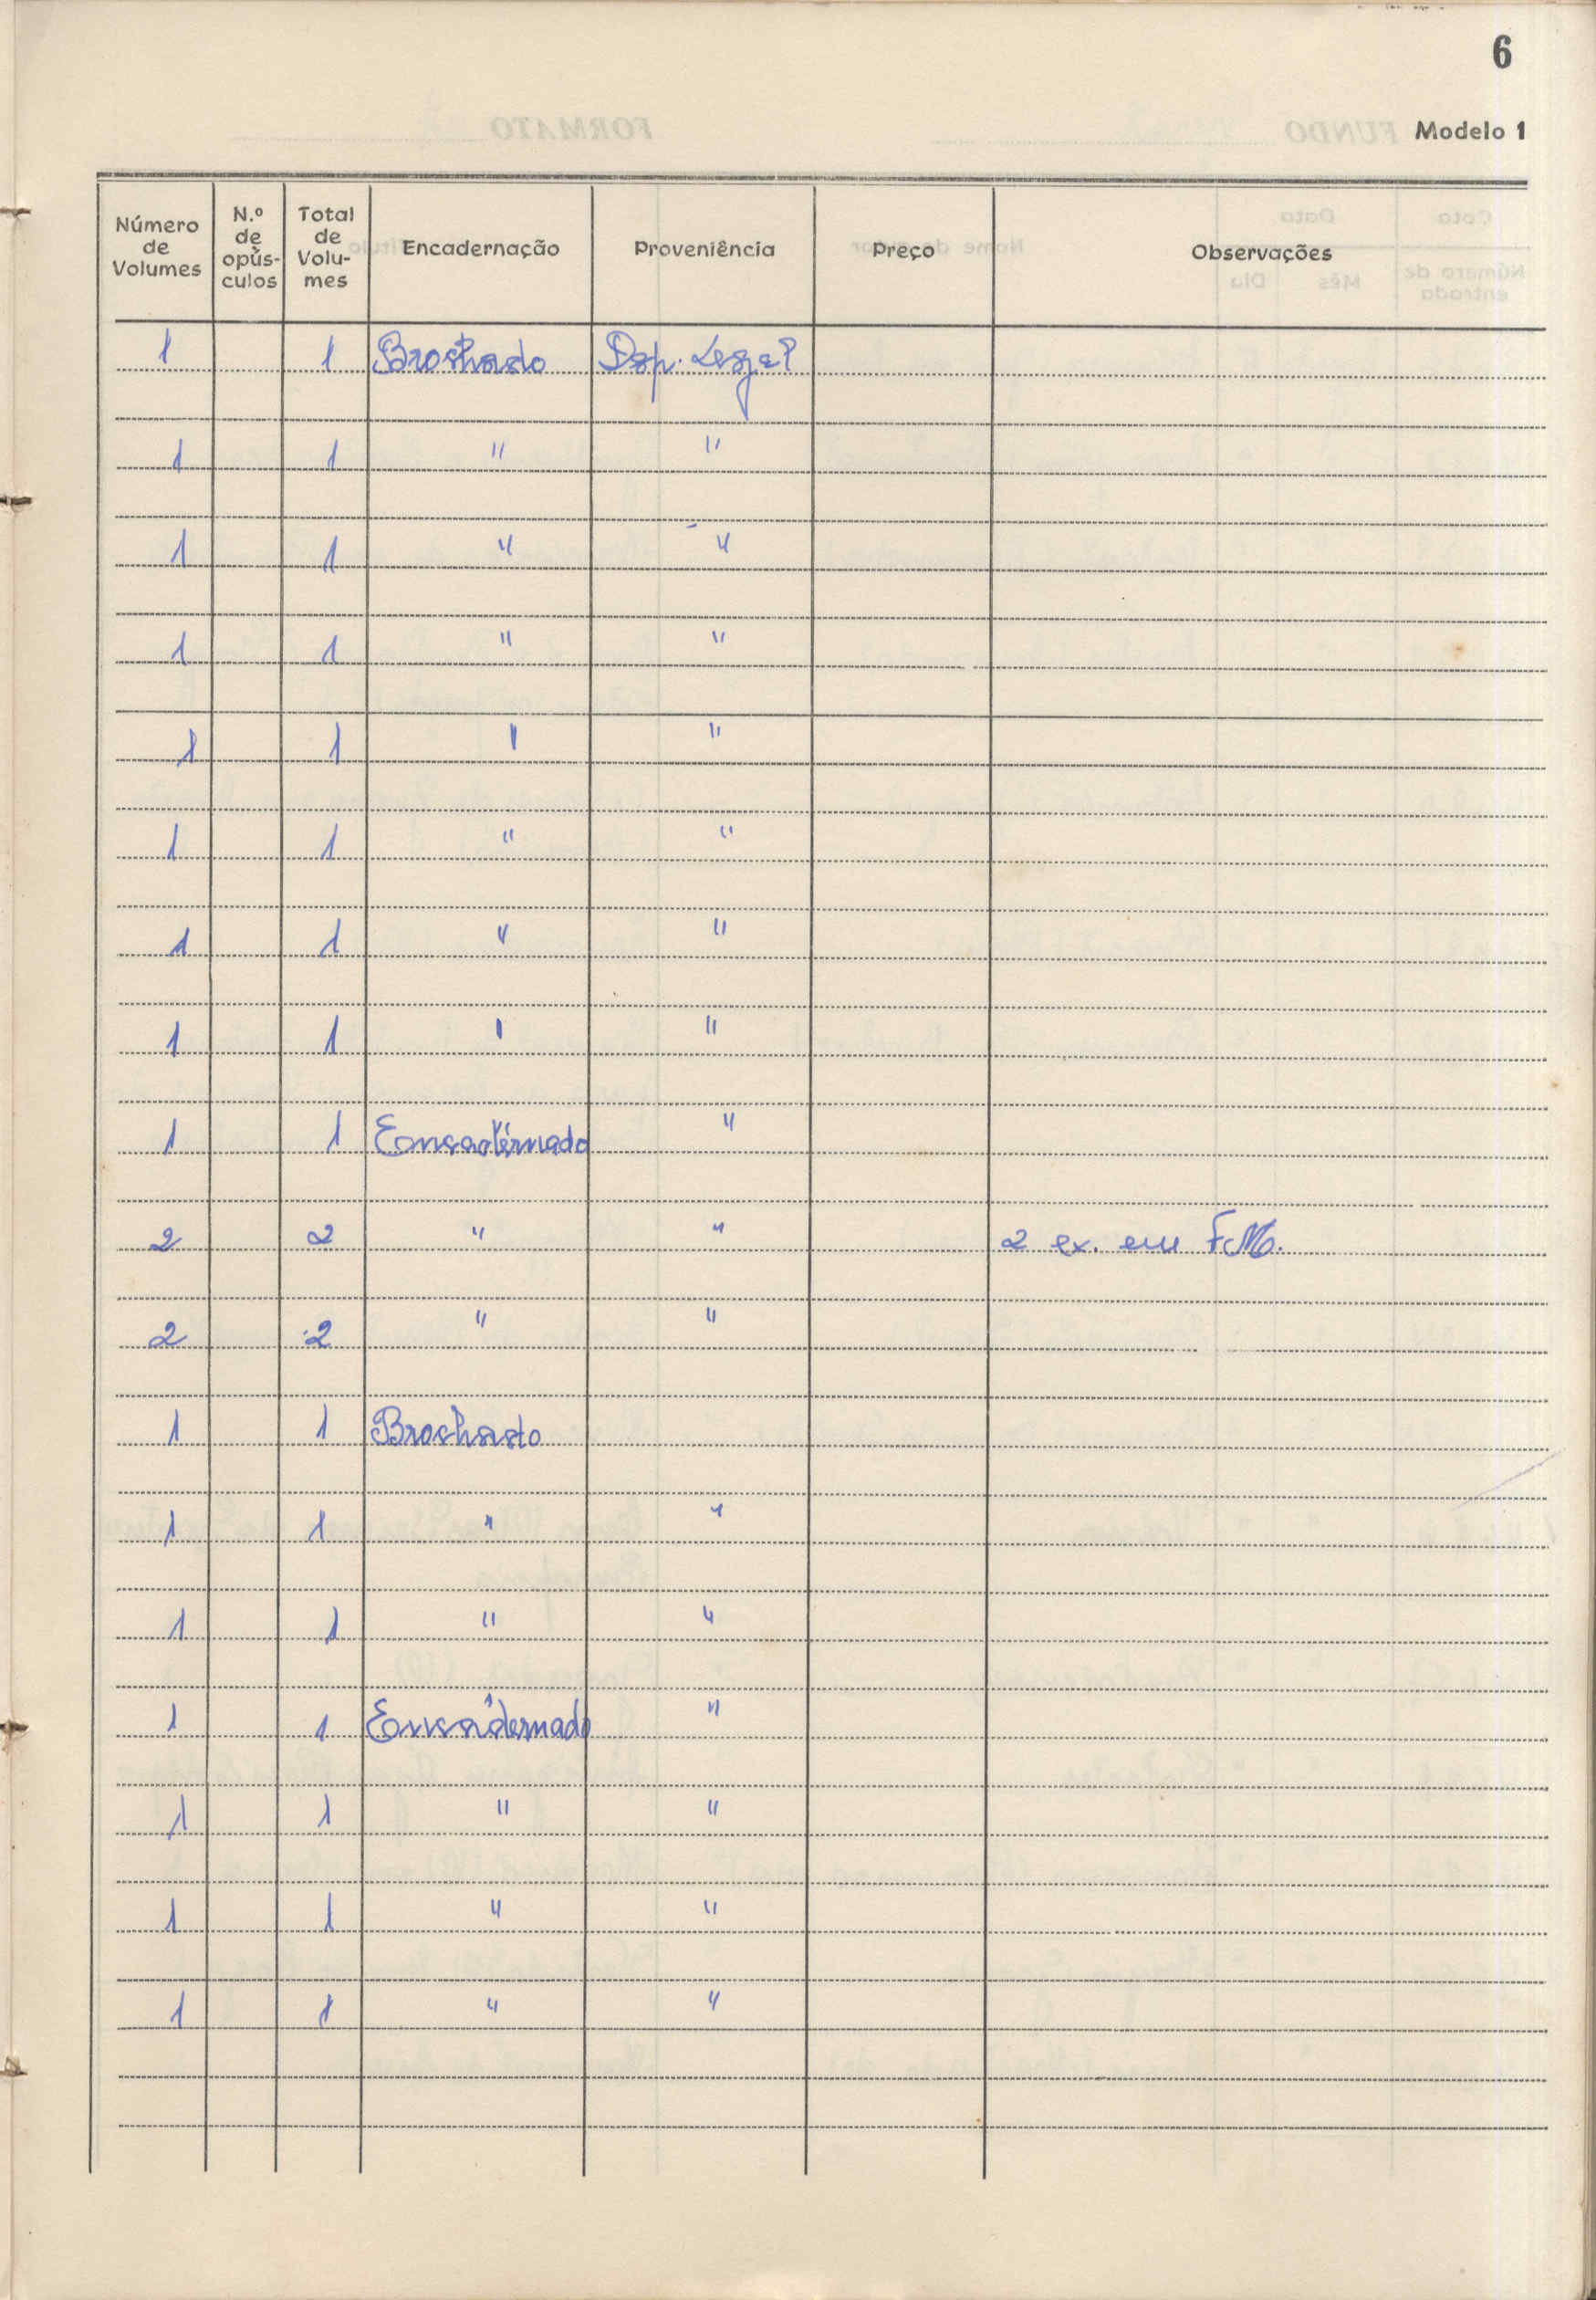 6
Modelo 1
Número de Volumes | N.º de opús-culos | Total de Volu-mes | Encadernação | Proveniência | Preço | Observações
1 | | 1 | Brochado | Dep. Legal
1 | | 1 | " | "
1 | | 1 | " | "
1 | | 1 | " | "
1 | | 1 | " | "
1 | | 1 | " | "
1 | | 1 | " | "
1 | | 1 | " | "
1 | | 1 | Encadernado | "
2 | | 2 | " | " | | 2 ex. em F.M.
2 | | 2 | " | "
1 | | 1 | Brochado
1 | | 1 | " | "
1 | | 1 | " | "
1 | | 1 | Encadernado | "
1 | | 1 | " | "
1 | | 1 | " | "
1 | | 1 | " | "